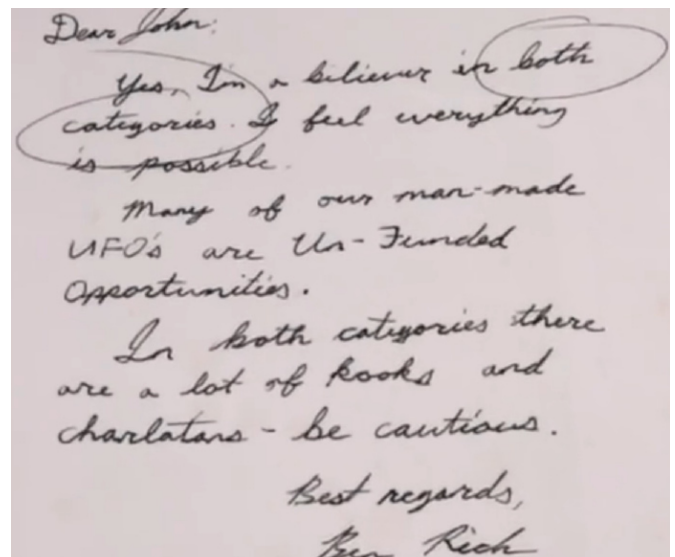 Dear John:
Yes, I'm a believer in both
categories. I feel everything
is possible.
Many of our man-made
UFO's are Un-Funded
Opportunities.
In both categories there
are a lot of kooks and
charlatans - be cautious.
Best regards,
Ben Rich